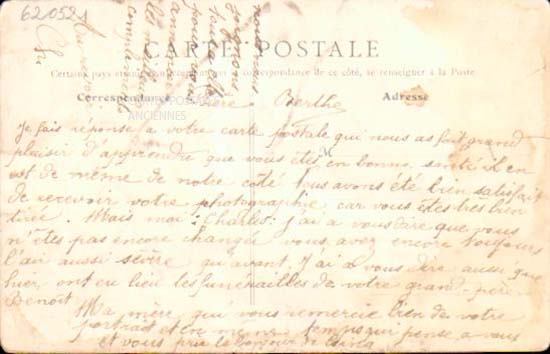 620521
CARTE POSTALE
Certains pays étrangers n'acceptent pas de correspondance de ce côté, se renseigner à la Poste
Correspondance
Adresse
CARTES POSTALES
ANCIENNES
Berthe
Je fais réponse a votre carte postale qui nous as fait grand
plaisir d'apprendre que vous êtes en bonne santé il en
est de même de notre côté Nous avons été bien satisfait
de recevoir votre photographie car vous êtes très bien
tirée. Mais moi Charles j'ai a vous dire que vous
n'êtes pas encore changée vous avez encore toujours
l'air aussi sévère qu'avant J'ai a vous dire aussi que
hier ont eu lieu les funérailles de votre grand-père
Benoit
Ma mère qui vous remercie bien de votre
portrait et en même temps qui pense a vous
et vous